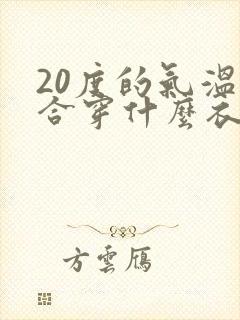 20度的氣溫
合穿什麼衣
方雲鴈